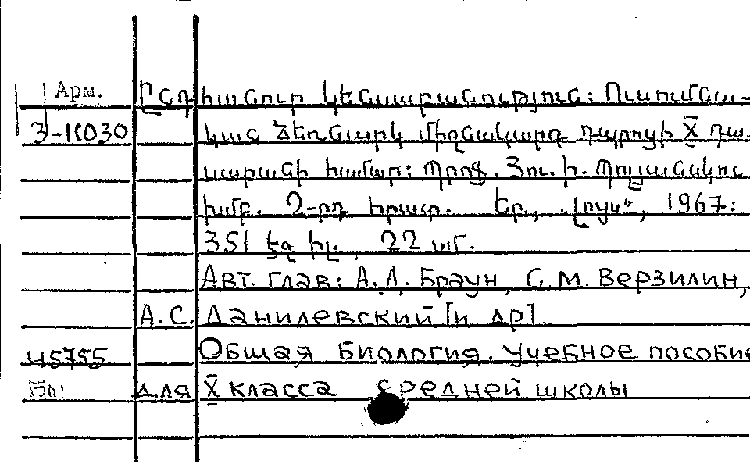 Арм. Ընդհանուր կենսաբանություն: Ուսումնա-
3-11030 կան ձեռնարկ միջնակարգ դպրոցի X դա-
սարանի համար: Պրոֆ. Յու. Ի. Պոլյանսկու
խմբ. 2-րդ հրատ. Եր., „Լույս“, 1967:
351 էջ իլ., 22 սմ.
Авт. глав: А. Л. Браун, С. М. Верзилин,
А. С. Данилевский [и др]
45755 Общая биология. Учебное пособие
для X класса средней школы